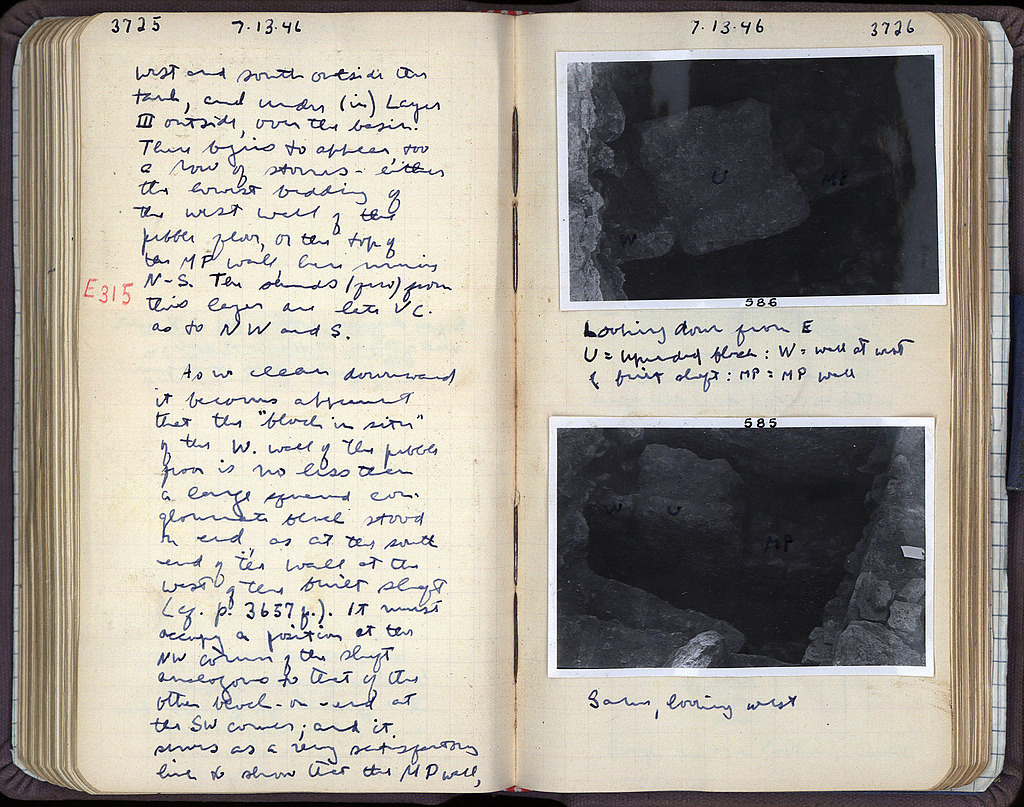 3725 7.13.46
west and south outside the
tank, and under (in) Layer
III outside, over the basin.
There begins to appear too
a row of stones - either
the lowest bedding of
the west wall of the
pebble floor, or the top of
the MP wall here running
N-S. The sherds (few) from
E315
this layer are late VC.
as to N W and S.
As we clean downward
it becomes apparent
that the "block in situ"
of the W. wall of the pebble
floor is no less than
a large squared con-
glomerate block stood
on end, as at the south
end of the wall at the
west of the built shaft
(cf. p. 3637 f.). It must
occupy a position at the
NW corner of the shaft
analogous to that of the
other block-on-end at
the SW corner; and it
serves as a very satisfactory
link to show that the MP wall,
7.13.46 3726
U
MP
W
586
Looking down from E
U = Upended block : W = wall at west
of built shaft : MP = MP wall
585
W U
MP
Same, looking west